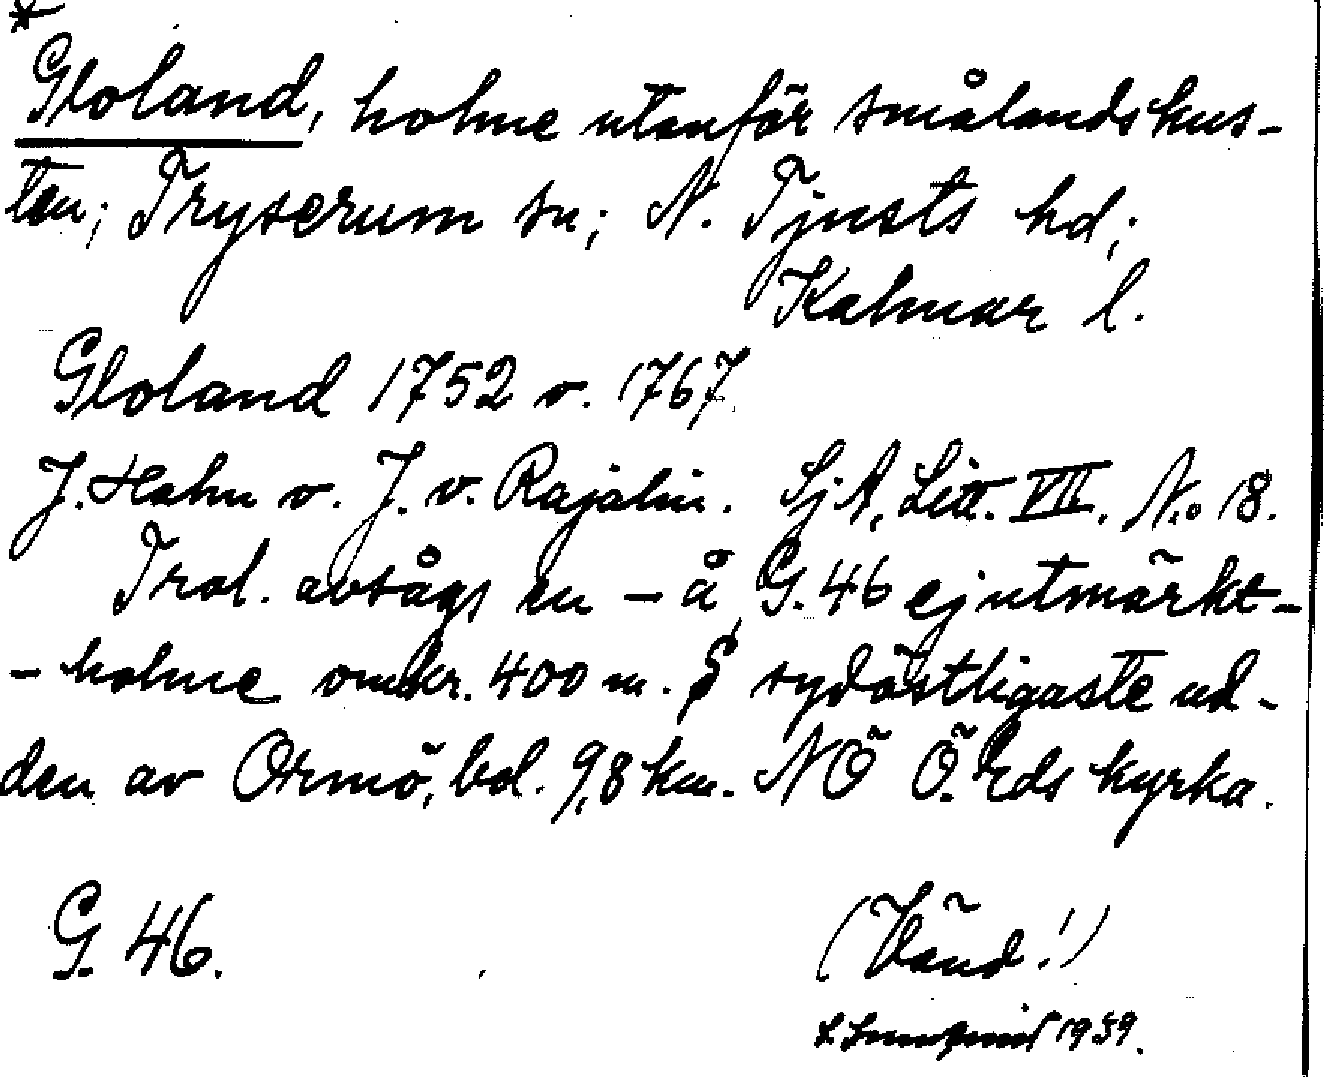 *
Gloland, holme utanför smålandskus-
ten; Tryserum sn; N. Tjusts hd;
Kalmar l.
Gloland 1752 o. 1767
J. Hahn o. J. v. Rajalin. Sj.A. Litt. VII. No 18.
Trol. avsågs en - å G. 46 ej utmärkt -
- holme omkr. 400 m. S sydöstligaste ud-
den av Ormö, bel. 9,8 km. NÖ Ö. Eds kyrka.
G. 46.
(Vänd!)
1939.